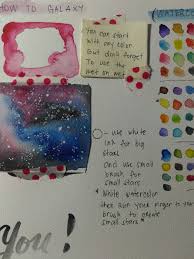 HOW TO GALAXY
WATERCOL
You can start
with any color
But don't forget
To use the
wet on wet
- use white
ink for big
stars
And use small
brush for
small stars
* White watercolor
then run your finger to your
brush to create
small stars *
You!